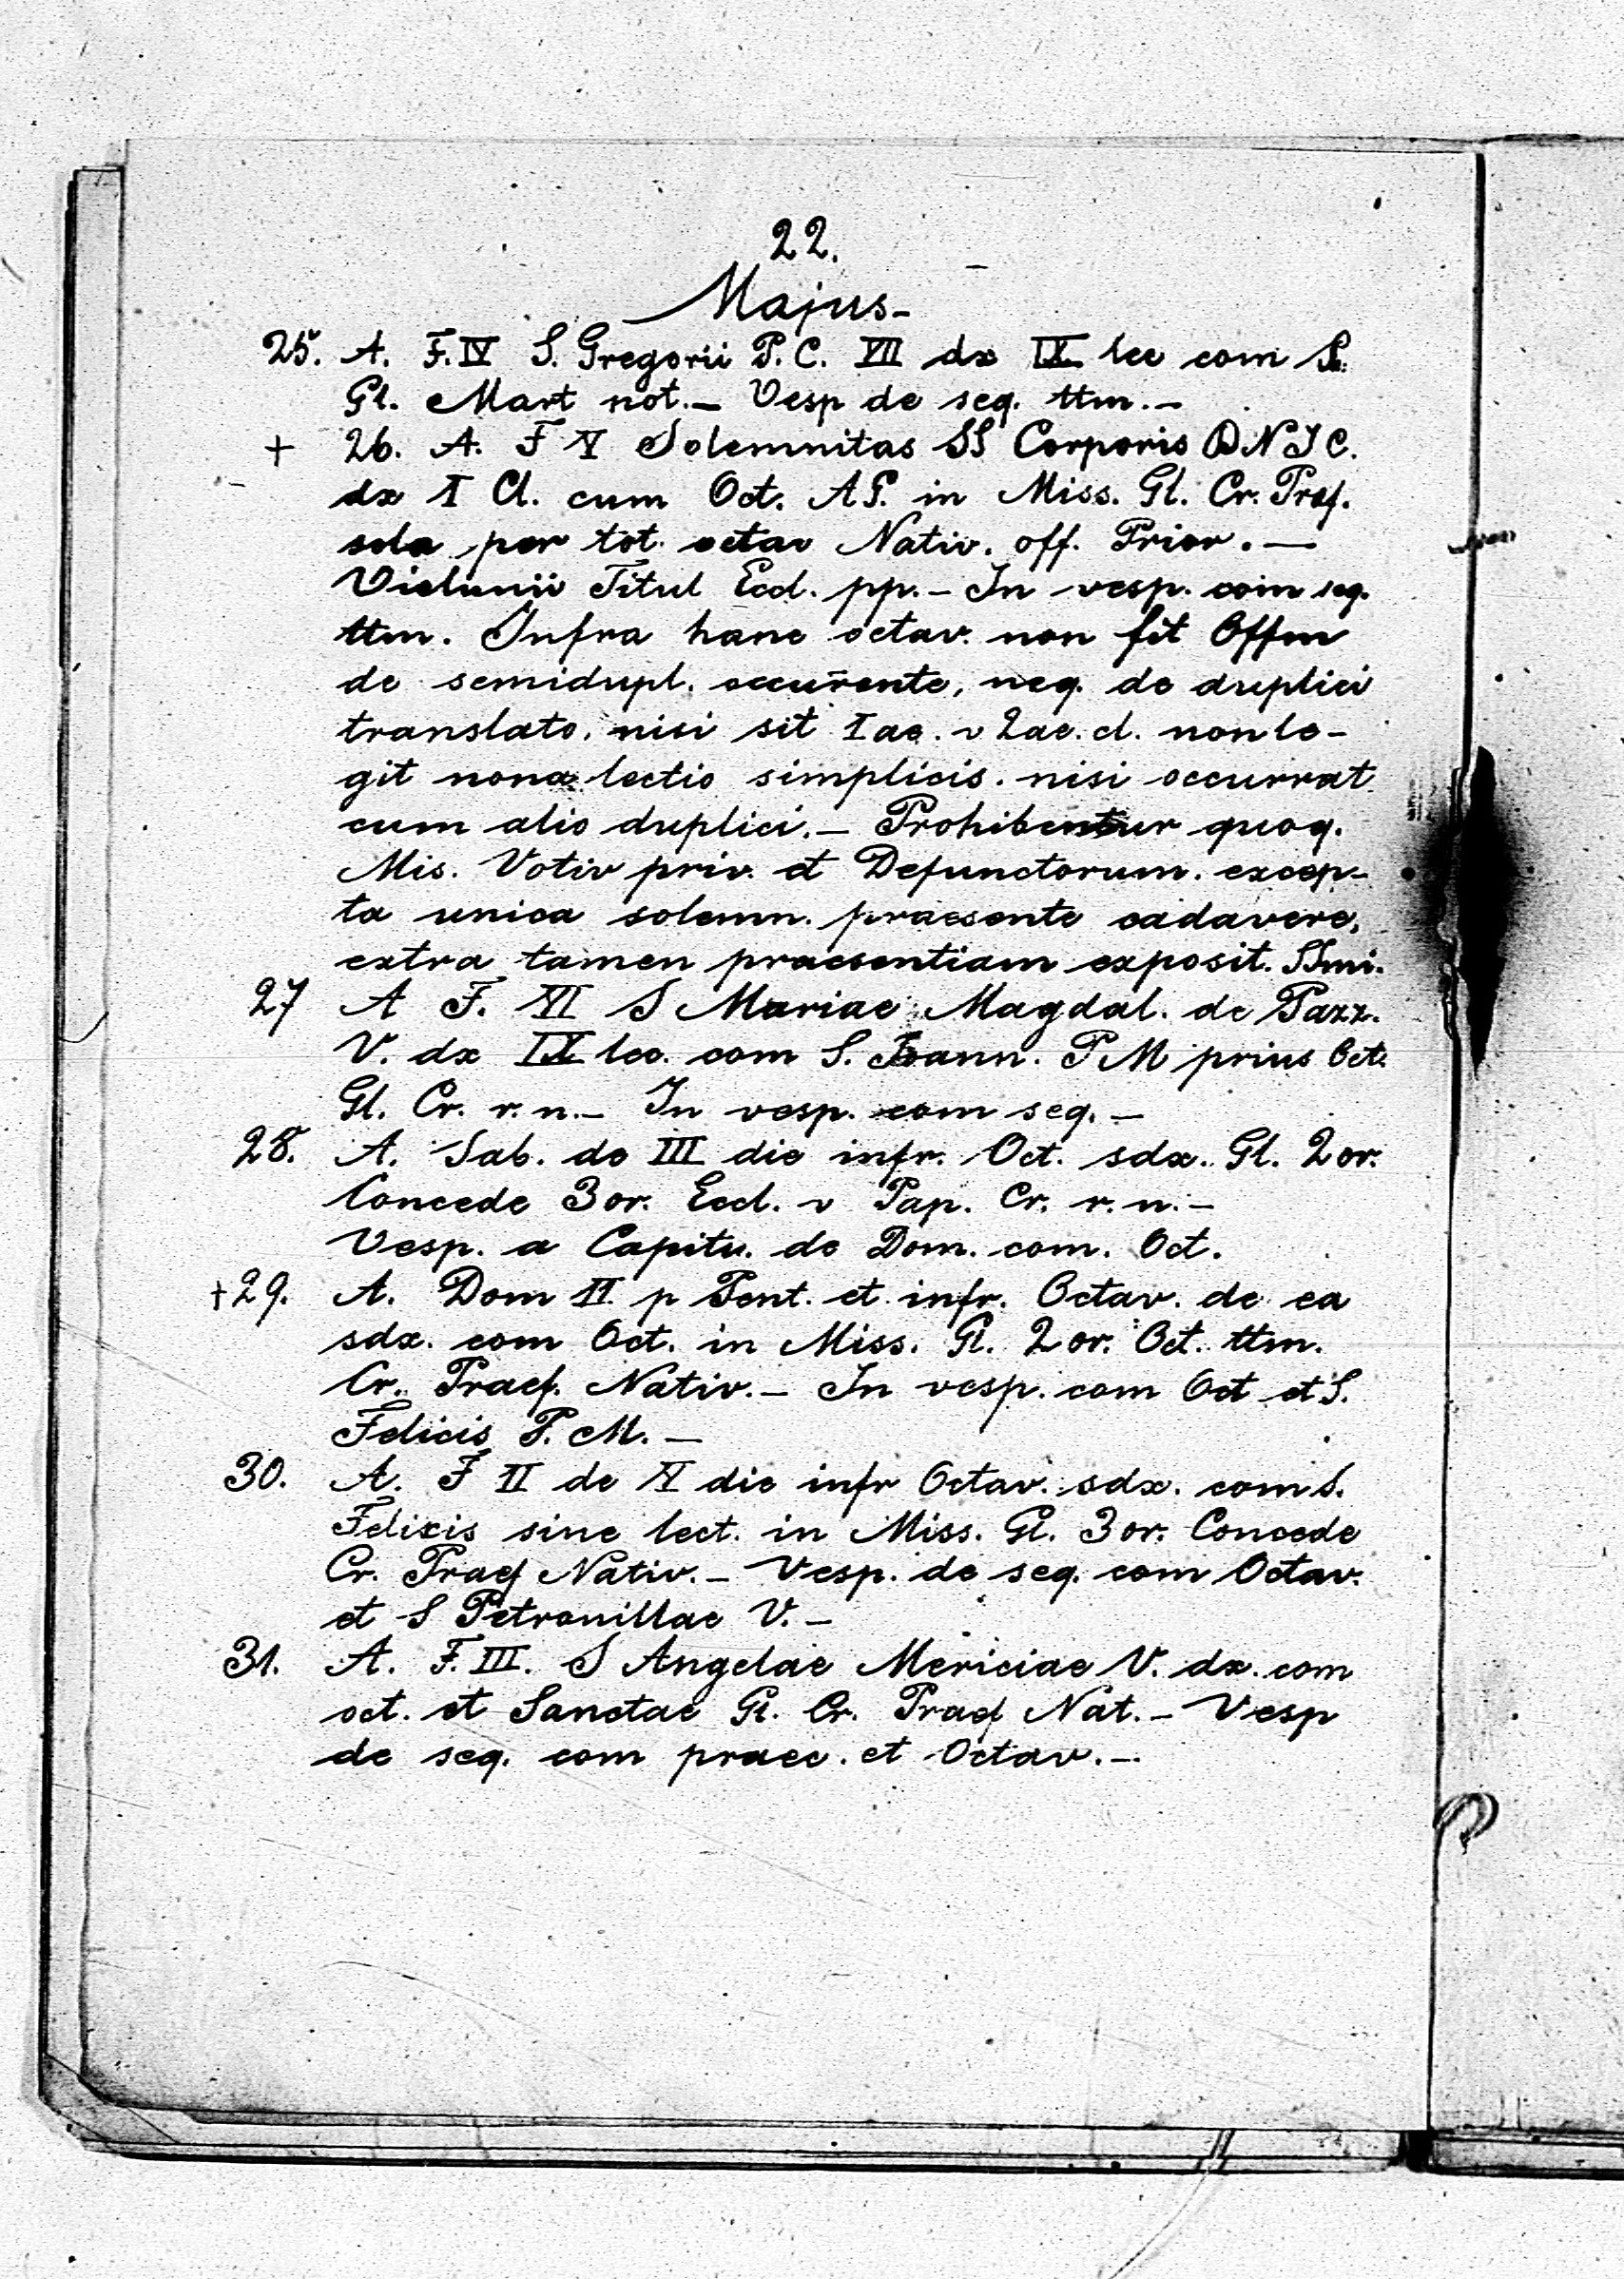 22.
Majus-
25. A. F. IV S. Gregorii P. C. VII dx IX lec com S.
Gl. Mart not.- Vesp de seq. ttm.-
+ 26. A. F V Solemnitas SS Corporis D N J C.
dx I Cl. cum Oct. AP. in Miss. Gl. Cr. Praf.
sola per tot. octav Nativ. off. Prior.-
Vielunii Titul Eccl. pp.- In vesp. com seq.
ttm. Infra hanc octav. non fit Offm
de semidupl. occur̄ente, neq. de duplici
translato, nisi sit Iae. v 2ae. cl. non le-
git nona lectio simplicis. nisi occurrat
cum alio duplici.- Prohibentur quoq.
Mis. Votiv priv. et Defunctorum. excep-
ta unica solemn. praesente cadavere,
extra tamen praesentiam exposit. SSmi.
27 A F. VI S Mariae Magdal. de Pazz.
V. dx IX lec. com S. Joann. P M prius Oct.
Gl. Cr. r. n.- In vesp. com seq.-
28. A. Sab. de III die infr. Oct. sdx. Gl. 2 or.
Concede 3 or. Eccl. v Pap. Cr. r. n.-
Vesp. a Capitu. de Dom. com. Oct.
+ 29. A. Dom II p Pent. et infr. Octav. de ea
sdx. com Oct. in Miss. Gl. 2 or. Oct. ttm.
Cr. Praef. Nativ.- In vesp. com Oct et S.
Felicis P. M.-
30. A. F II de V die infr Octav. sdx. com S.
Felicis sine lect. in Miss. Gl. 3 or. Concede
Cr. Praef Nativ.- Vesp. de seq. com Octav.
et S Petronillae V.-
31. A. F. III. S Angelae Mericiae V. dx. com
oct. et Sanctae Gl. Cr. Praef Nat.- Vesp
de seq. com praec. et Octav.-